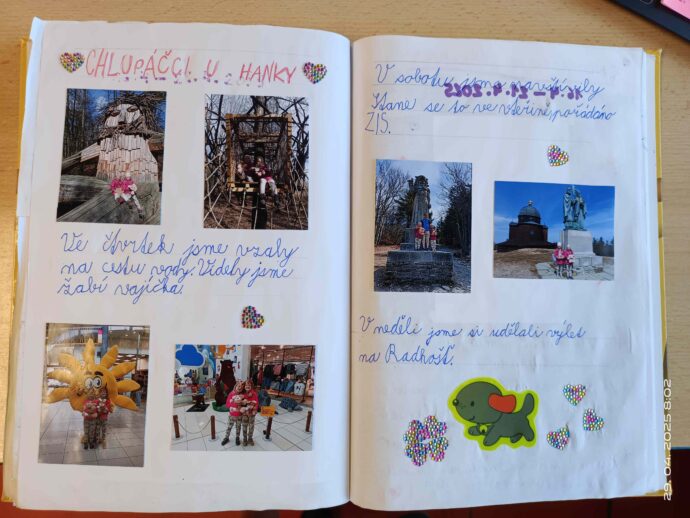 CHLUPÁČCI U HANKY
Ve čtvrtek jsme vzaly
na cestu vody. Viděly jsme
žabí vajíčka.
V sobotu jsme navštívily
Stane se to ve vteřině, pořádáno
ZIS.
V neděli jsme si udělali výlet
na Radhošť.
29.04.2025 8:02